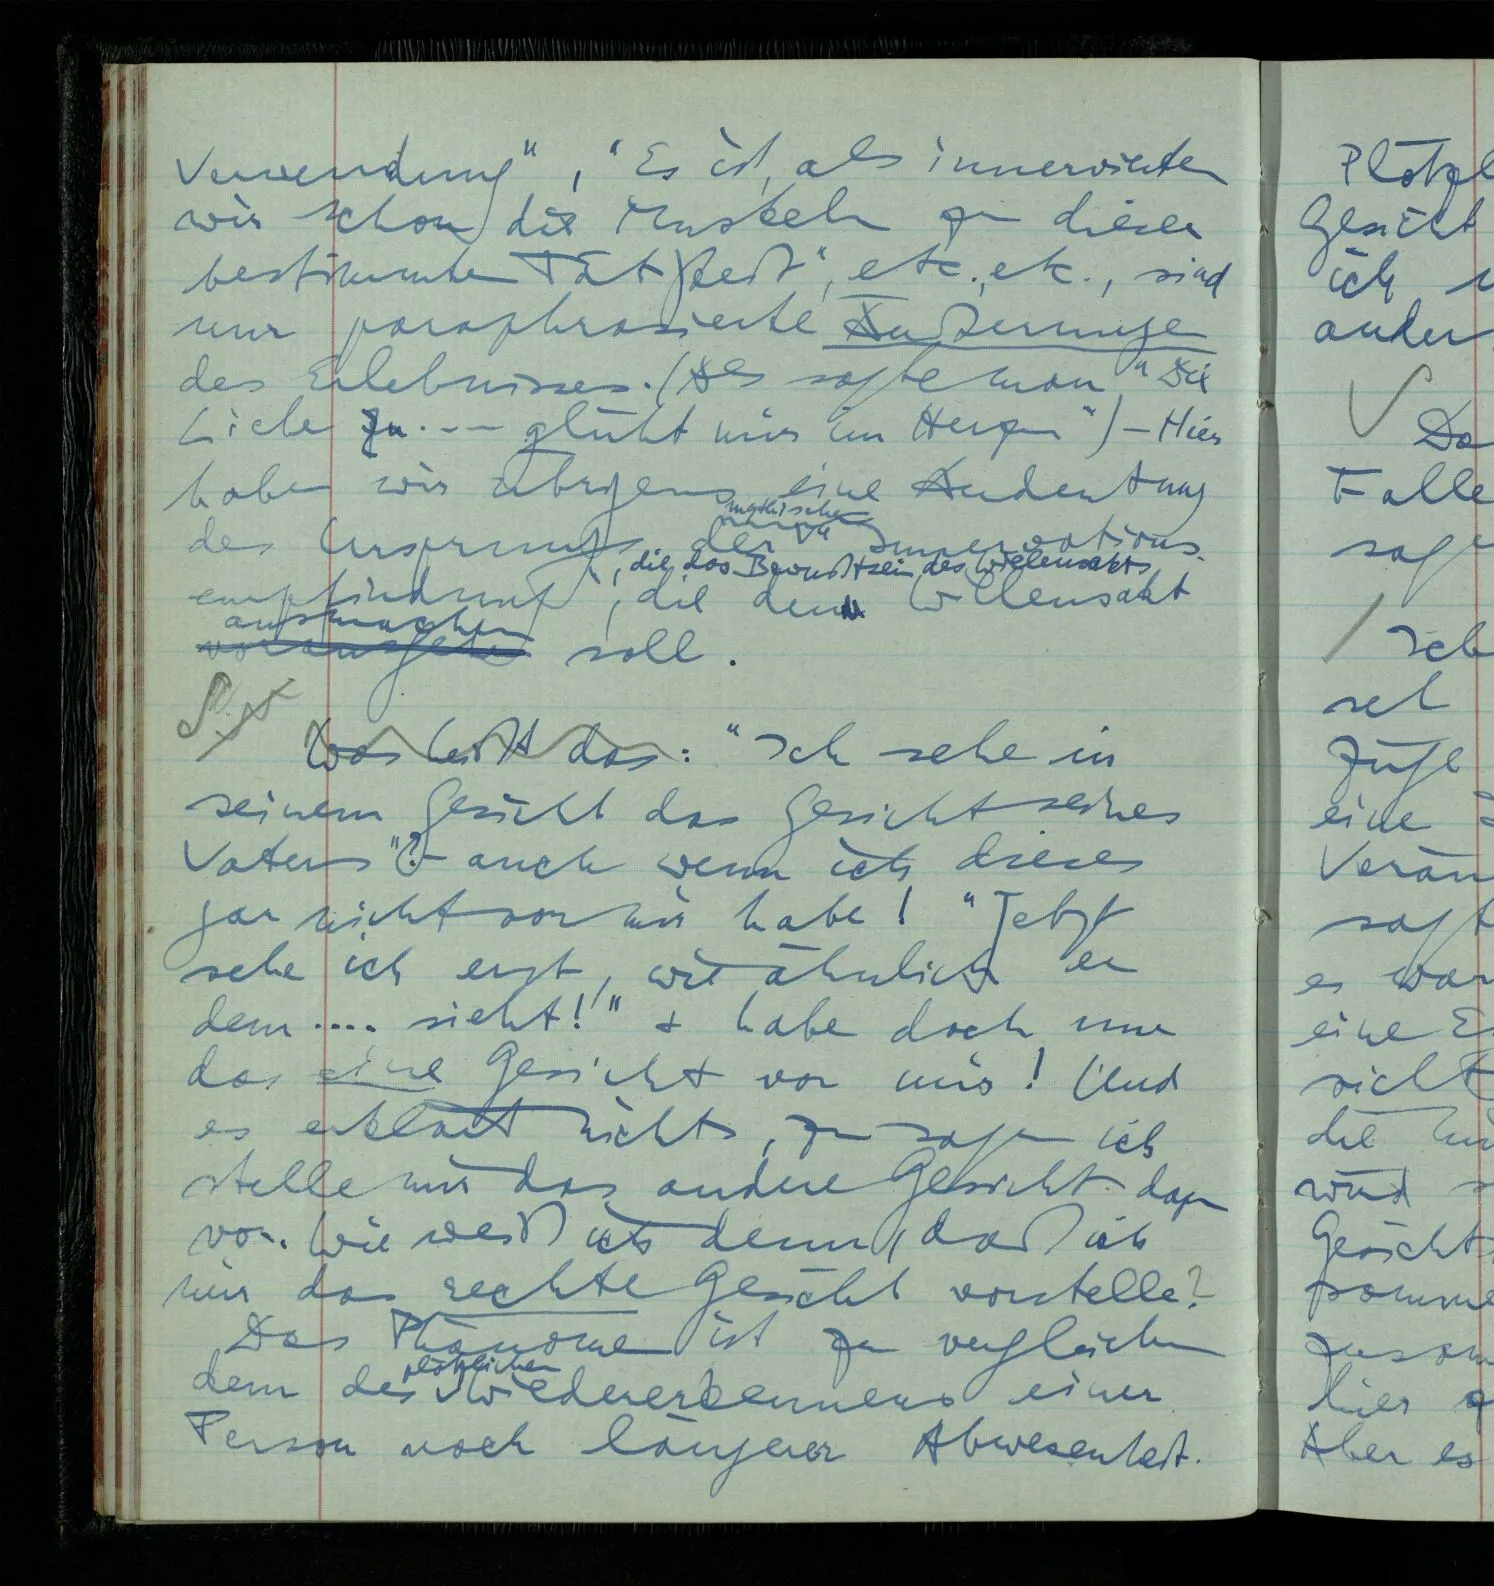 Verwendung", "Es ist, als innervierten
wir schon die Muskeln zu dieser
bestimmten Tätigkeit", etc., etc., sind
nur paraphrasierte Äußerungen
des Erlebnisses. (Als sagte man "Die
Liebe zu ·–– glüht mir im Herzen") – Hier
haben wir übrigens eine Andeutung
mythischen
des Ursprungs der Innervations-
, die das Bewußtsein des Willensakts
empfindung", die den Willensakt
ausmachen
soll.
Was heißt das: "Ich sehe in
seinem Gesicht das Gesicht seines
Vaters"? – auch wenn ich dieses
gar nicht vor mir habe! "Jetzt
sehe ich erst, wie ähnlich er
dem .... sieht!" + habe doch nur
das eine Gesicht vor mir! Und
es erklärt nichts, zu sagen ich
stelle mir das andere Gesicht dazu
vor. Wie weiß ich denn, daß ich
mir das rechte Gesicht vorstelle?
Das Phänomen ist zu vergleichen
plötzlichen
dem des Wiedererkennens einer
Person nach längerer Abwesenheit.
Plötzl
Gesicht
ich
ander
Da
Falle
sage
Ich
seh
Züge
eine
Verän
sagt
es war
eine
sicht
die
wird
Gesicht
zusam
hier
Aber es